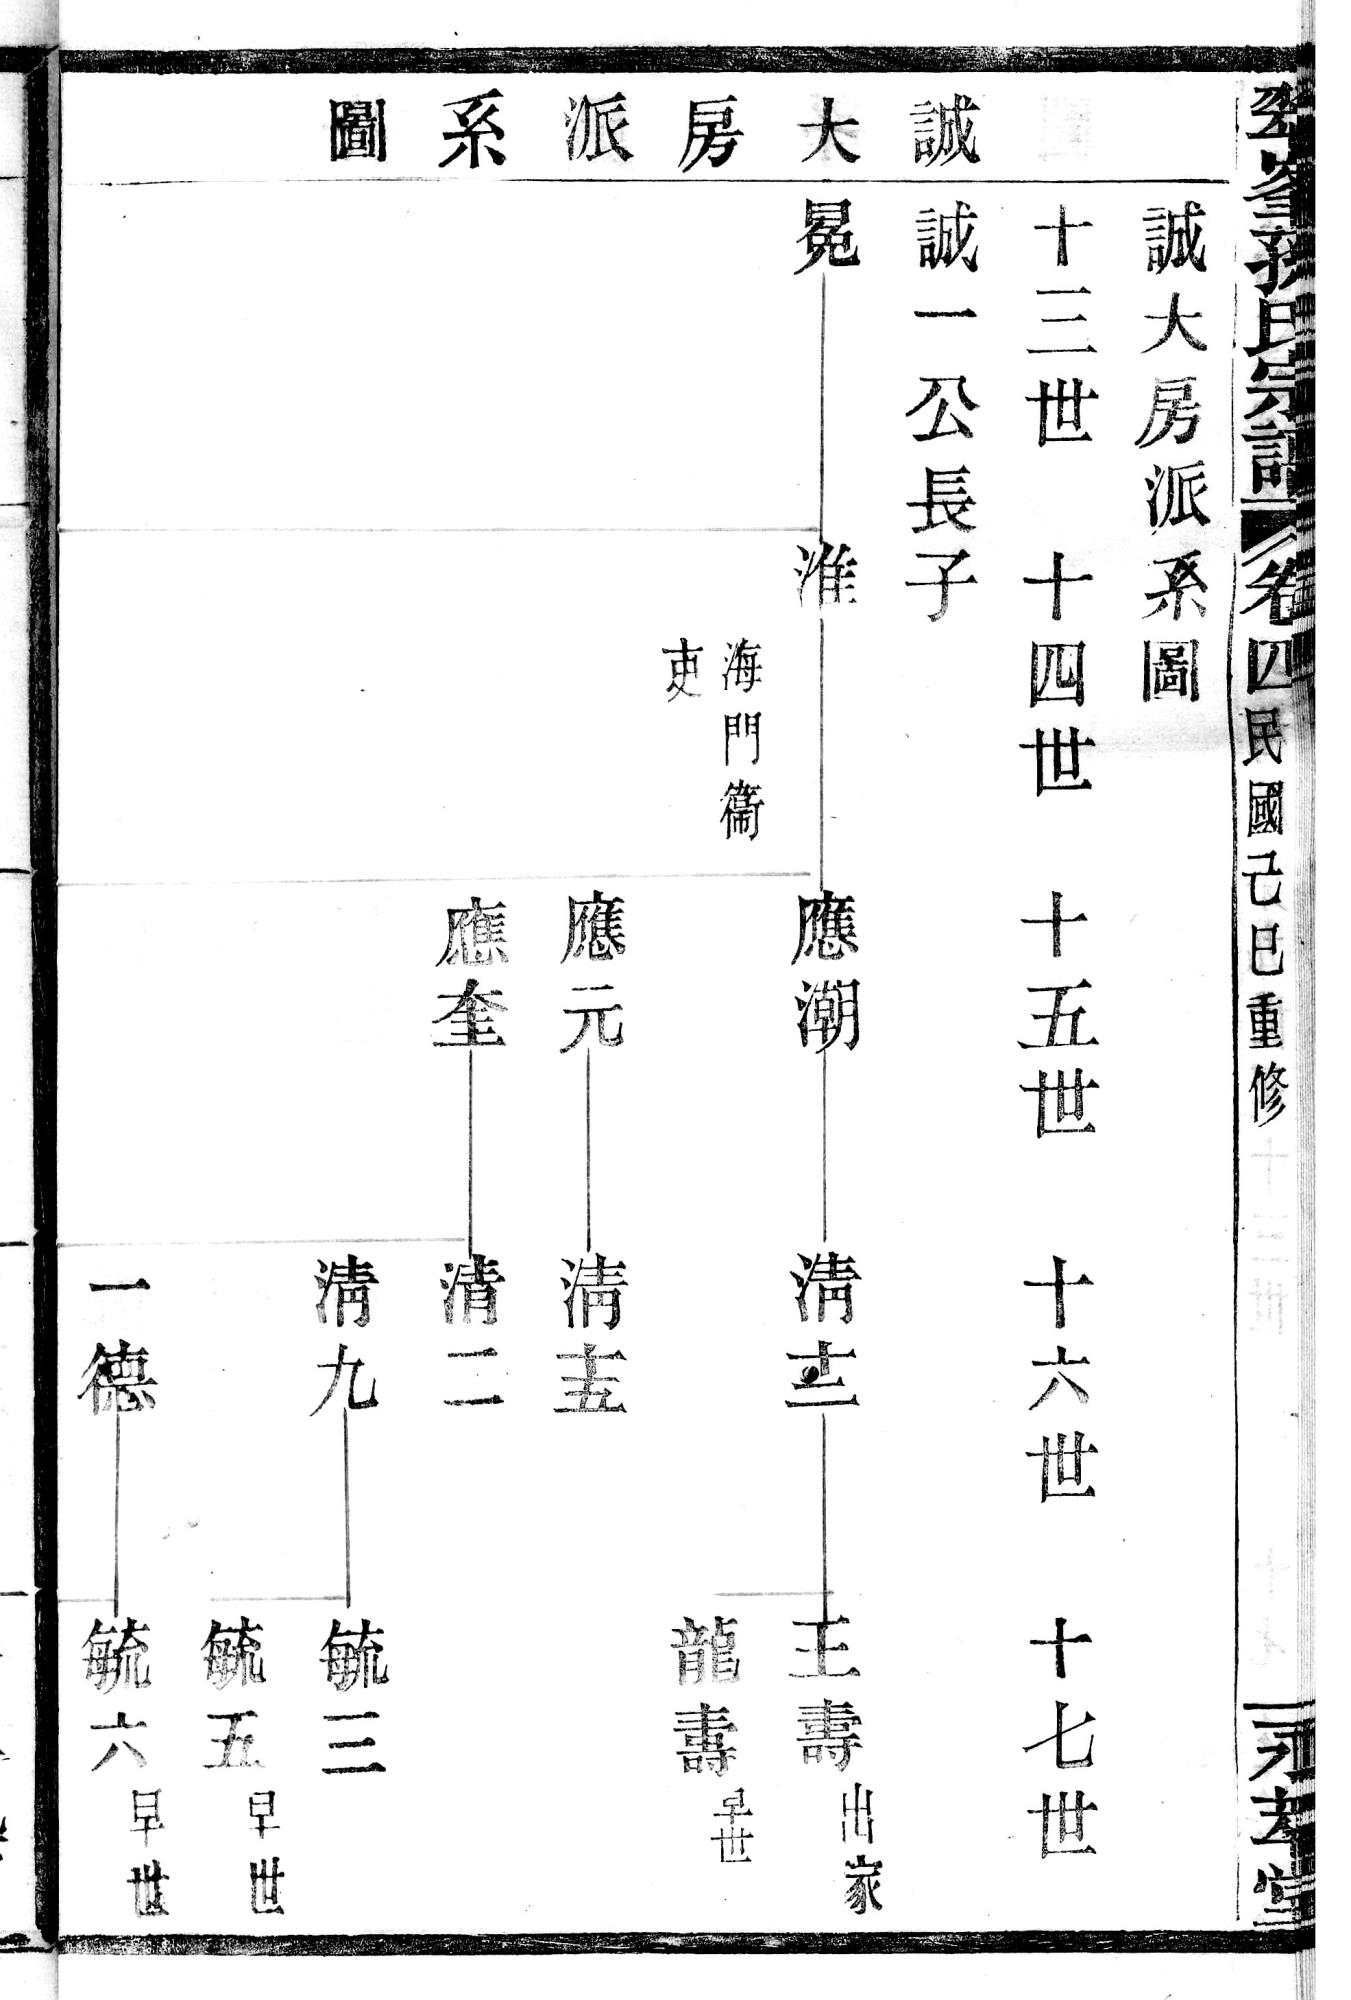 峯孫氏宗譜 卷四 民國己巳重修 永孝堂
誠大房派系圖
誠大房派系圖
十三世 十四世 十五世 十六世 十七世
誠一公長子
冕 淮 應潮 清十三 王壽 出家
海門衞
吏
龍壽 早世
應元 清十五
應奎 清二
清九 毓三
毓五 早世
一德 毓六 早世